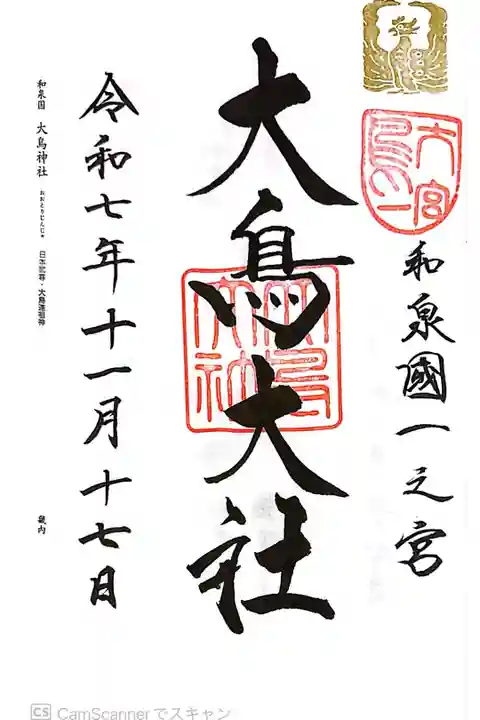 和泉國一之宮
大鳥大社
令和七年十一月十七日
和泉国 大鳥神社 おおとりじんじゃ 日本武尊・大鳥連祖神
畿内
大鳥一宮
大鳥大社
CS CamScannerでスキャン